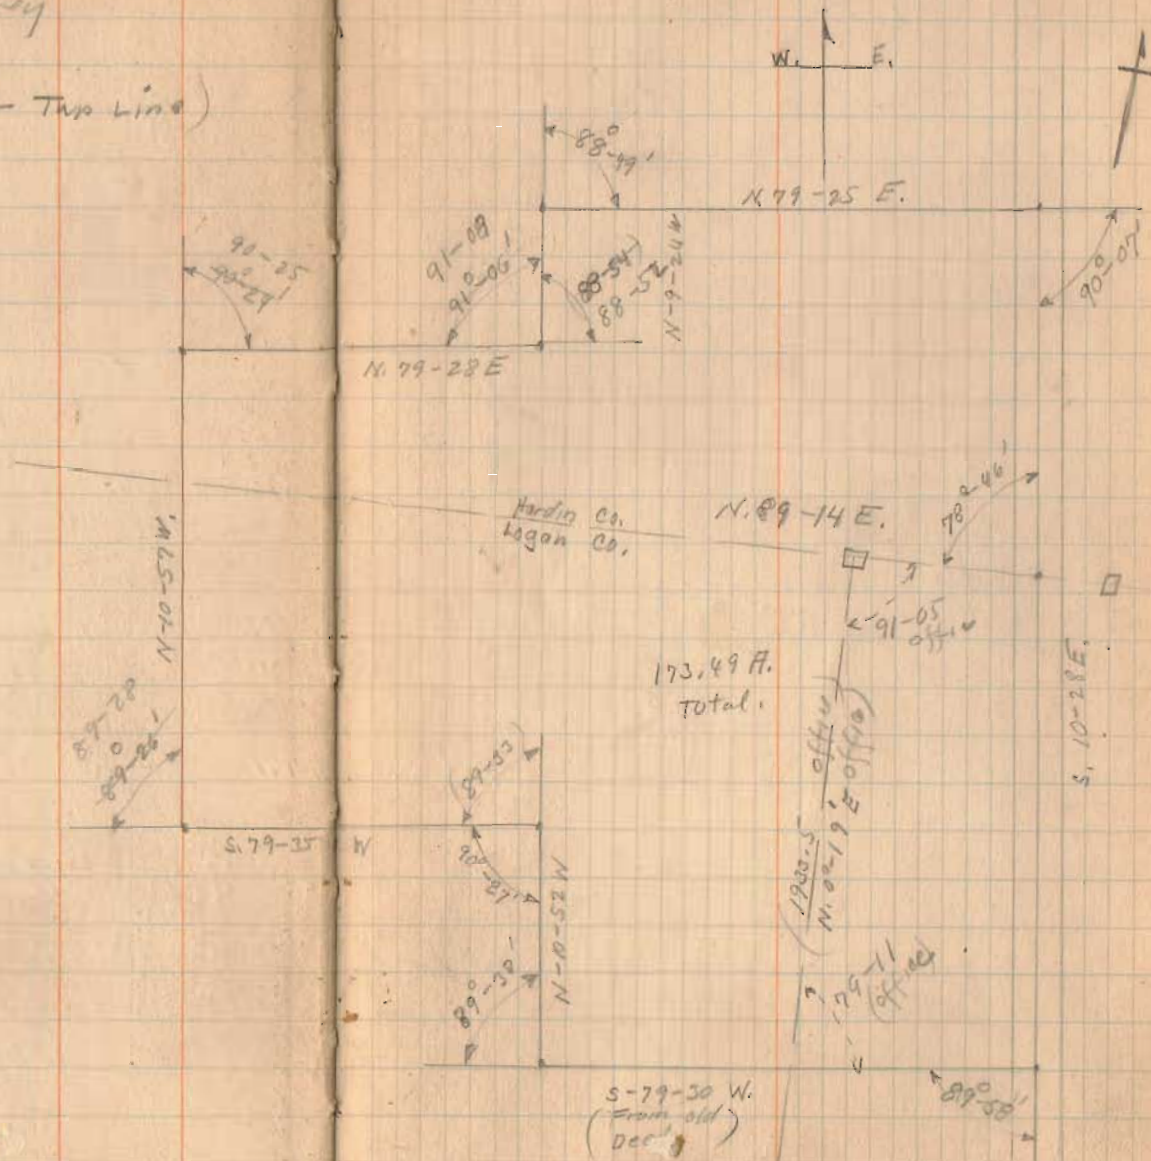 - Tap Line)
W. E.
88°-49'
N. 79-25 E.
90°-07'
90-25
90°-24'
91-08
91°-06'
(88-54)
88-52
N-9-24W
N. 79-28 E
Hardin Co.
Logan Co.
N. 89-14 E.
78°-46'
91-05
office
N-10-57W.
173.49 A.
Total.
S. 10-28 E.
89-28
89°-26'
(89-33)
S. 79-35 W
90°-27'
N-10-52 W
89°-30'
(1933.5 office)
N. 0°-19' E office)
79-11
(office)
S-79-30 W.
(From old
Deed)
89°-58'